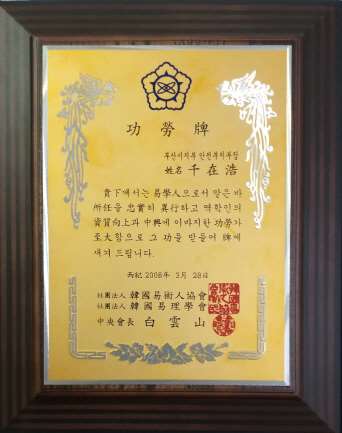 功勞牌
부산시지부 안전부지부장
姓名 千在浩
貴下께서는 易學人으로서 맡은 바
所任을 忠實히 異行하고 역학인의
資質向上과 中興에 이바지한 功勞가
至大함으로 그 功을 받들어 牌에
새겨 드립니다.
西紀 2008年 3月 28日
社團法人 韓國易術人協會
社團法人 韓國易理學會
中央會長 白雲山